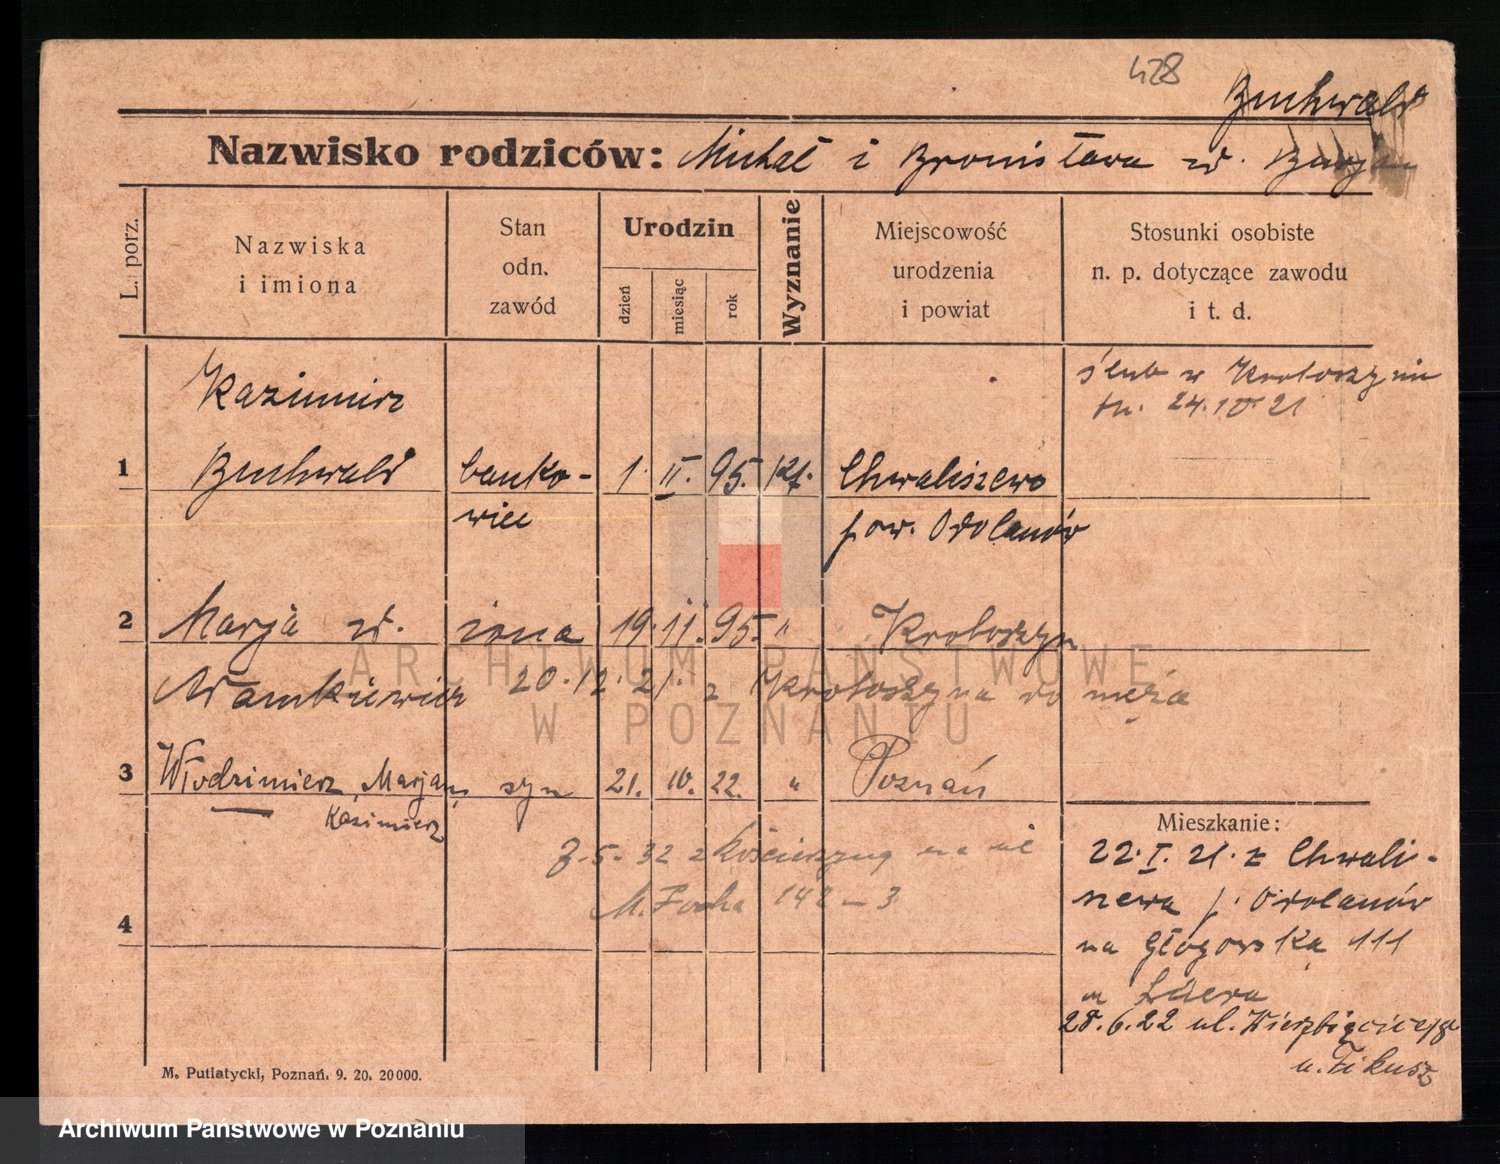 428
Buchwald
Nazwisko rodziców: Michał i Bronisława zd.
L. porz.
Nazwiska i imiona
Stan odn. zawód
Urodzin
dzień
miesiąc
rok
Wyznanie
Miejscowość urodzenia i powiat
Stosunki osobiste n. p. dotyczące zawodu i t. d.
Kazimierz
ślub w Krotoszynie
dn. 24.10.21
1 Buchwald banko- 1. II. 95. kt. Chwaliszewo
wiec pow. Odolanów
2 Marja zd. żona 19. 11. 95. " Krotoszyn
Adamkiewicz 20.12.21. z Krotoszyna do męża
3 Włodzimierz, Marjan, syn 21. 10. 22. " Poznań
Kazimierz
Mieszkanie:
5. 32 z Kościerzyny na ul
M. Focha 142 - 3
22. I. 21. z Chwali-
szewa p. Odolanów
4
na Głogowską 111
u
28.6.22 ul. Wierzbięcice
u. Fikusz
M. Putiatycki, Poznań. 9. 20. 20000.
ARCHIWUM PAŃSTWOWE
W POZNANIU
Archiwum Państwowe w Poznaniu